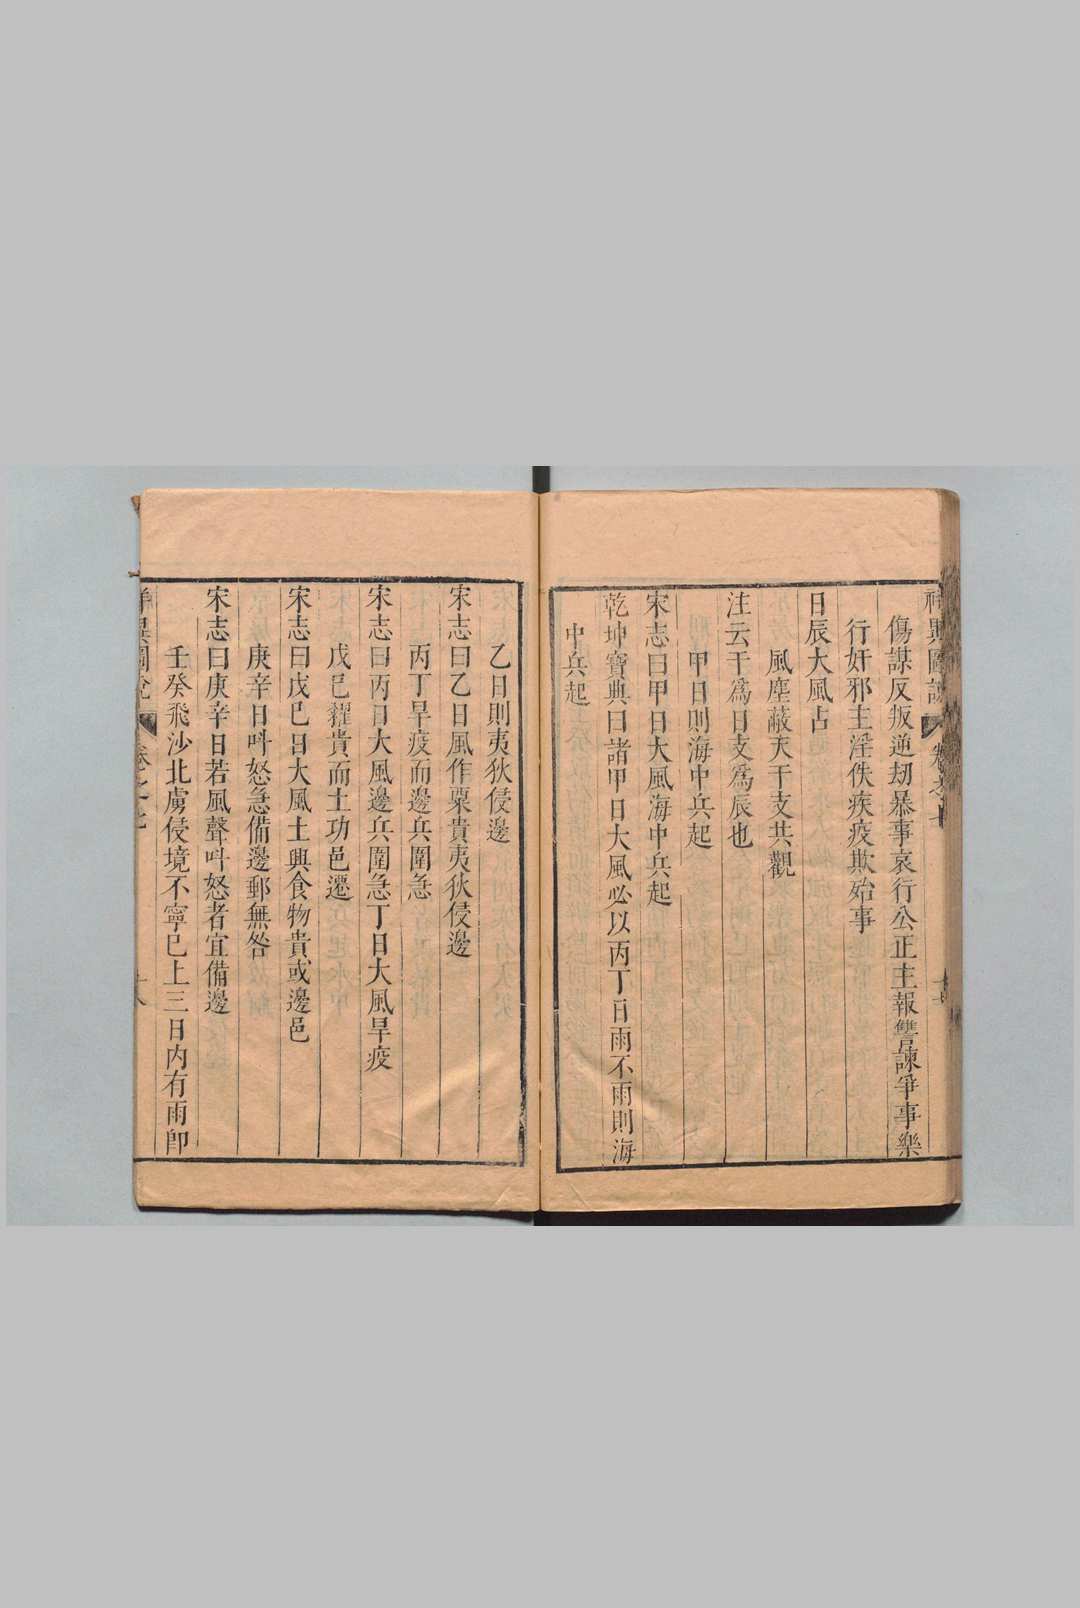 傷謀反叛逆刧暴事哀行公正主報讐諫爭事樂
行奸邪主淫佚疾疫欺殆事
日辰大風占
風塵蔽天干支共觀
注云干爲日支爲辰也
甲日則海中兵起
宋志曰甲日大風海中兵起
乾坤寶典曰諸甲日大風必以丙丁日雨不雨則海
中兵起
乙日則夷狄侵邊
宋志曰乙日風作粟貴夷狄侵邊
丙丁旱疫而邊兵圍急
宋志曰丙日大風邊兵圍急丁日大風旱疫
戊巳糴貴而土功邑遷
宋志曰戊巳日大風土興食物貴或邊邑
庚辛日呌怒急備邊郵無咎
宋志曰庚辛日若風聲呌怒者宜備邊
壬癸飛沙北虜侵境不寧巳上三日內有雨卽
祥異圖說 卷之七 十八